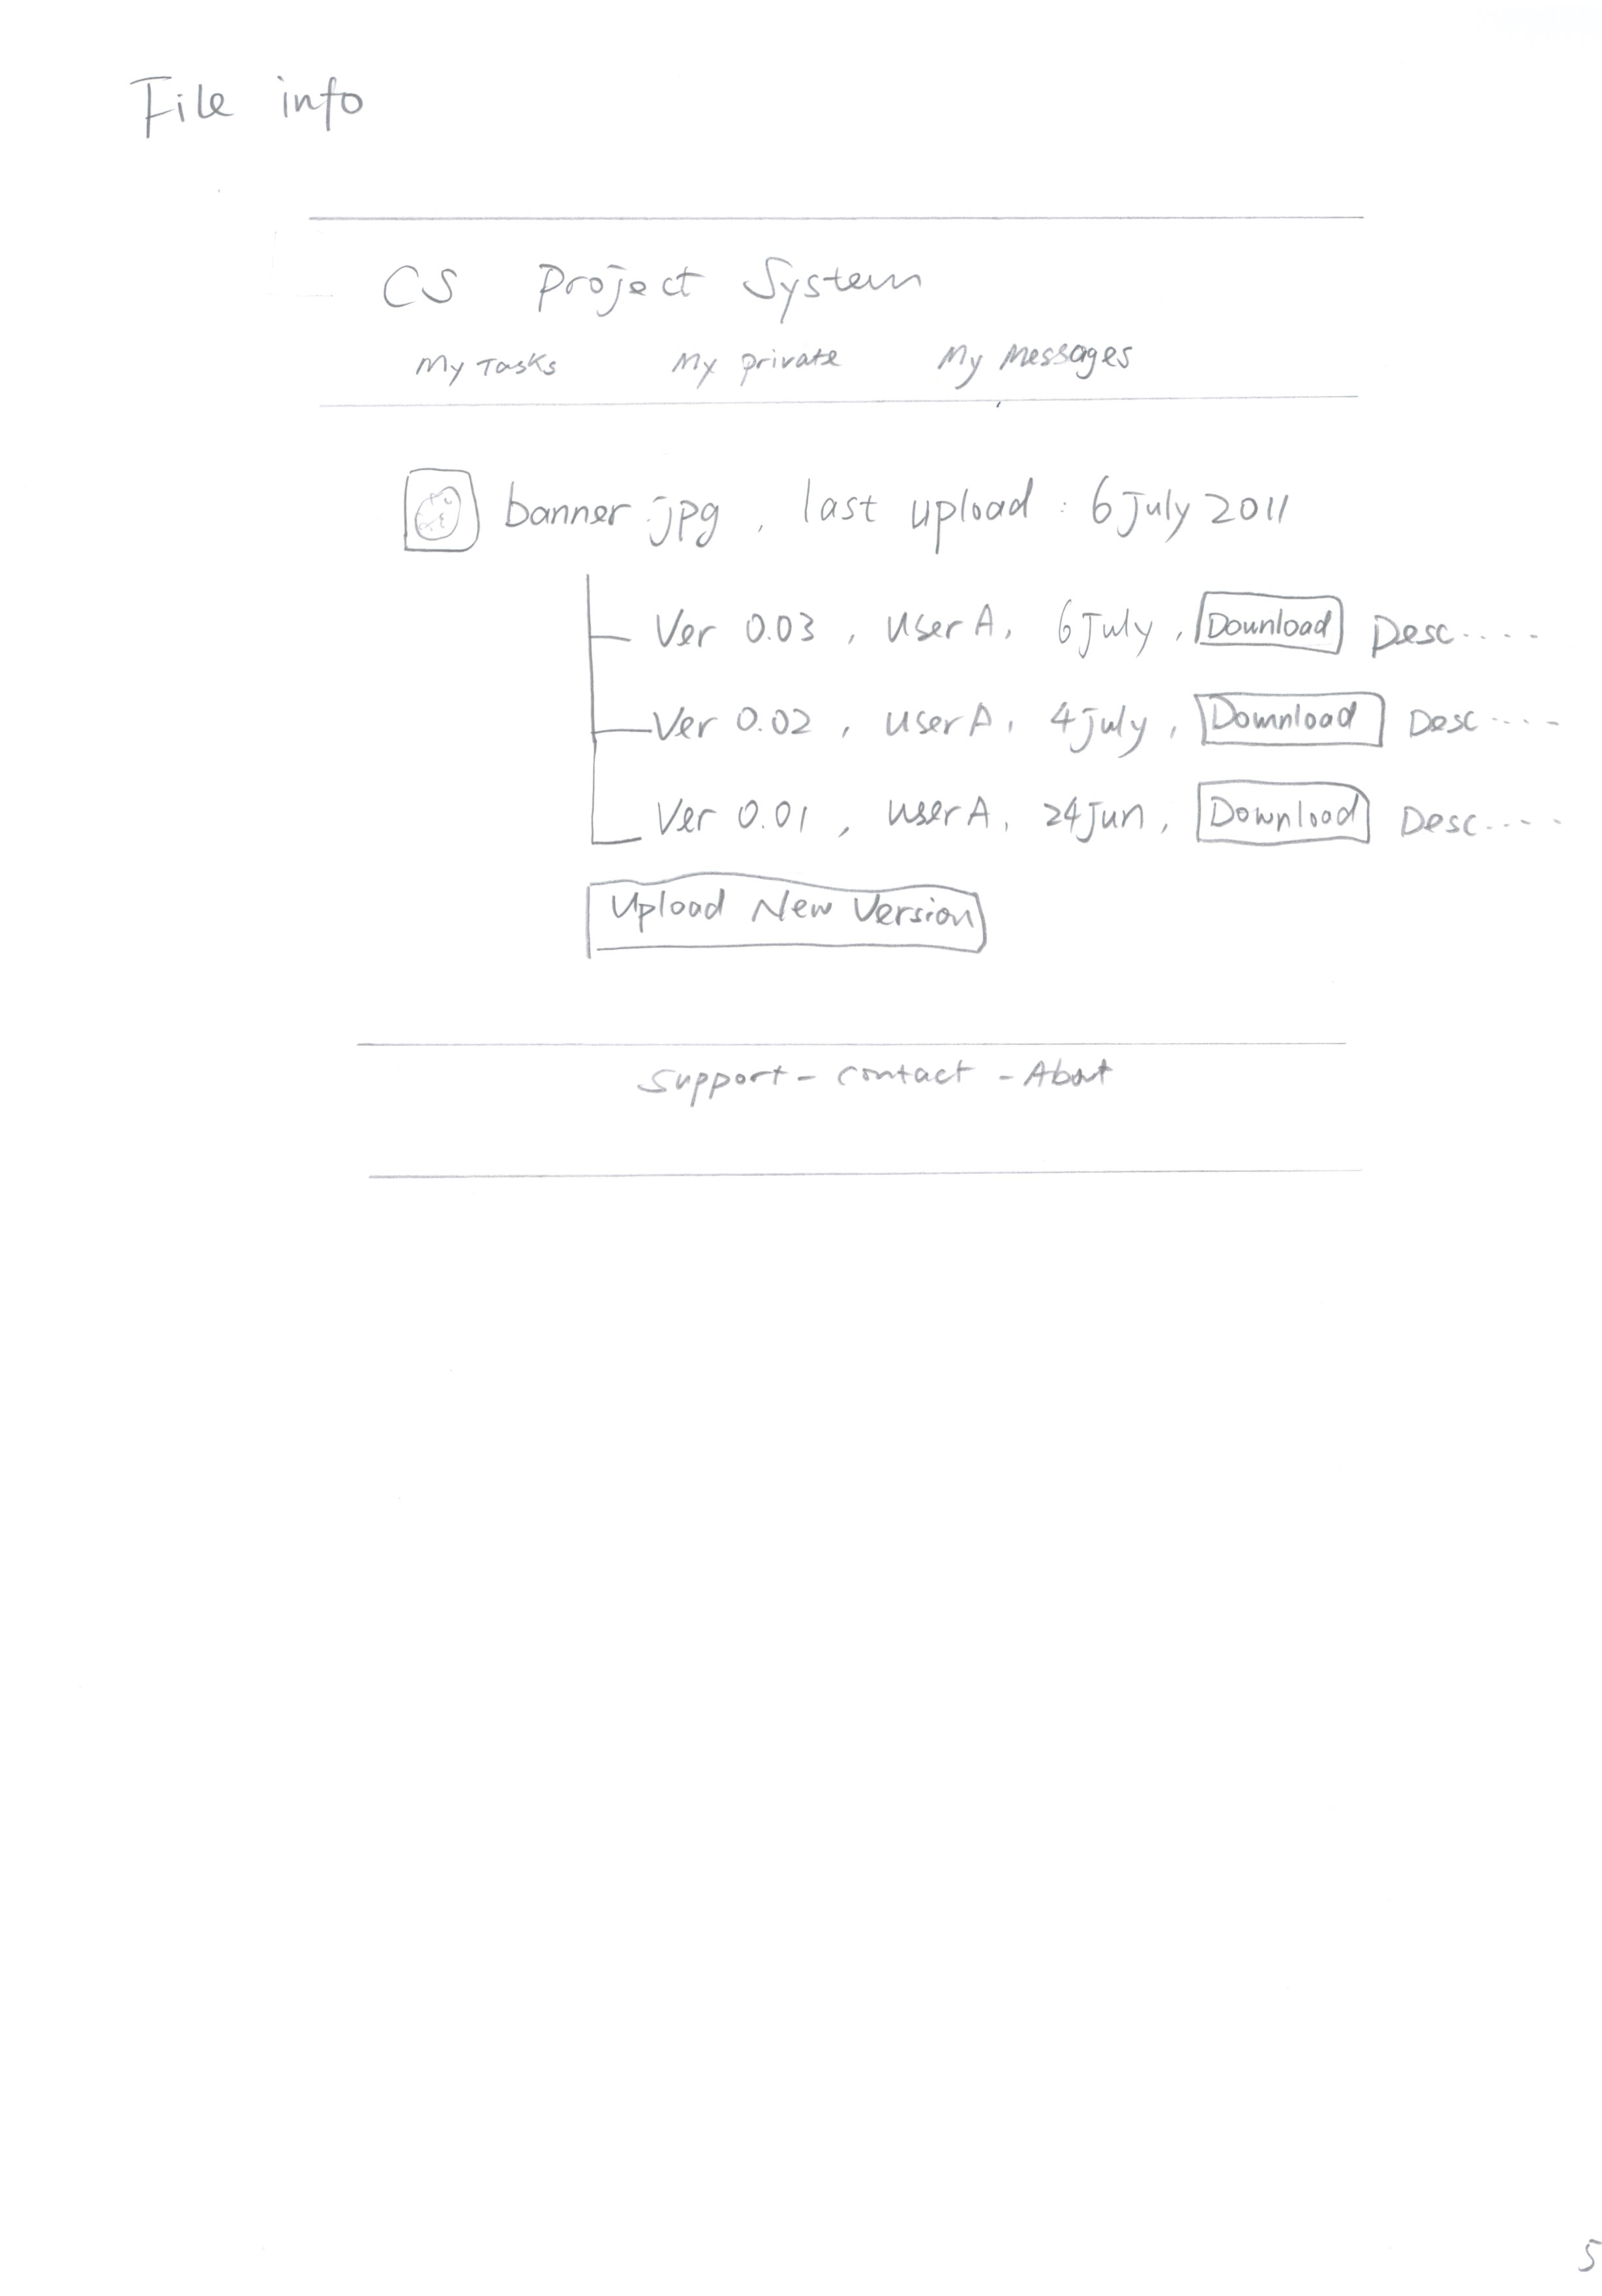 File info
CS Project System
My Tasks My private My Messages
banner.jpg , last upload : 6 July 2011
Ver 0.03 , user A, 6 July , Download Desc.....
Ver 0.02 , user A, 4 July , Download Desc.....
Ver 0.01 , user A, 24 Jun , Download Desc.....
Upload New Version
Support - Contact - About
5